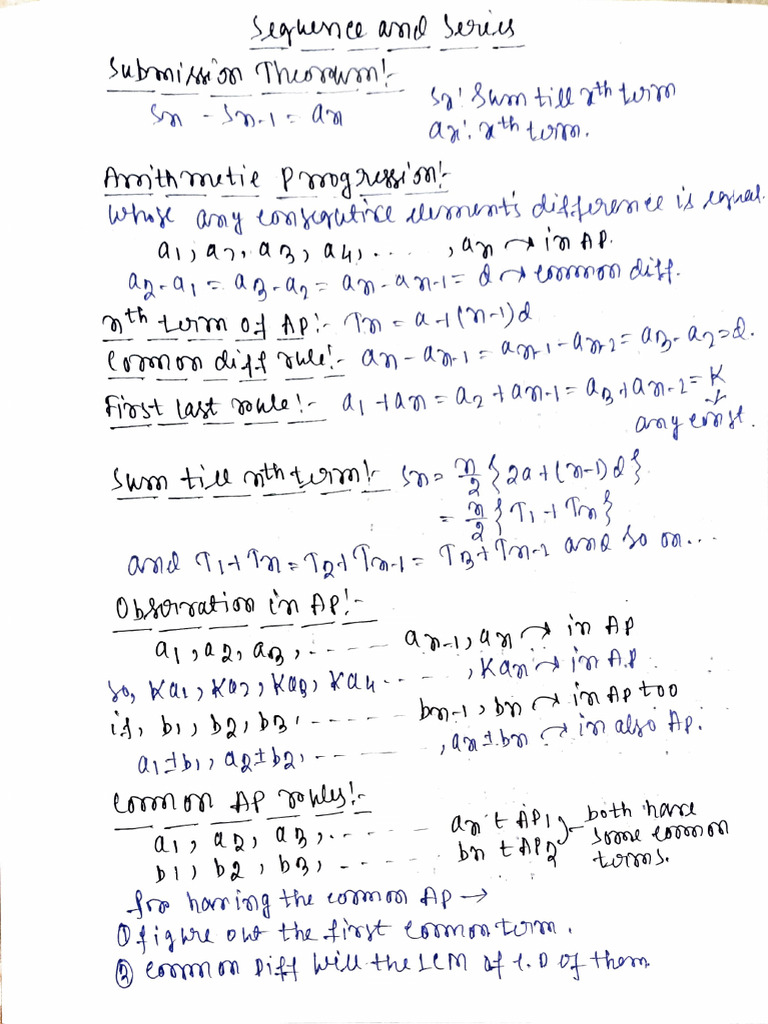 Sequence and Series
Submission Theorum!-
Sn - Sn-1 = an
Sn: Sum till nth term
an: nth term.
Arrithmetic Progression!-
Whose any consequtive element's difference is equal.
a1, a2, a3, a4, ...., an → in AP.
a2-a1 = a3-a2 = an-an-1 = d → common diff.
nth term of AP!- Tn = a+(n-1)d
Common diff rule!- an-an-1 = an-1-an-2 = a3-a2=d.
First last rule!- a1+an = a2+an-1 = a3+an-2 = K
↓
any const.
Sum till nth term!- Sn = n/2 {2a+(n-1)d}
= n/2 {T1+Tn}
and T1+Tn = T2+Tn-1 = T3+Tn-2 and so on...
Observation in AP!-
a1, a2, a3, ------ an-1, an → in AP
so, Ka1, Ka2, Ka3, Ka4 ------, Kan → in AP.
if, b1, b2, b3, ------ bn-1, bn → in AP too
a1±b1, a2±b2, ------, an±bn → in also AP.
Common AP rules!-
a1, a2, a3, ------ an t AP1
b1, b2, b3, ------ bn t AP2
both have some common terms.
for having the common AP →
① figure out the first common term.
② common Diff will the LCM of C.D of them